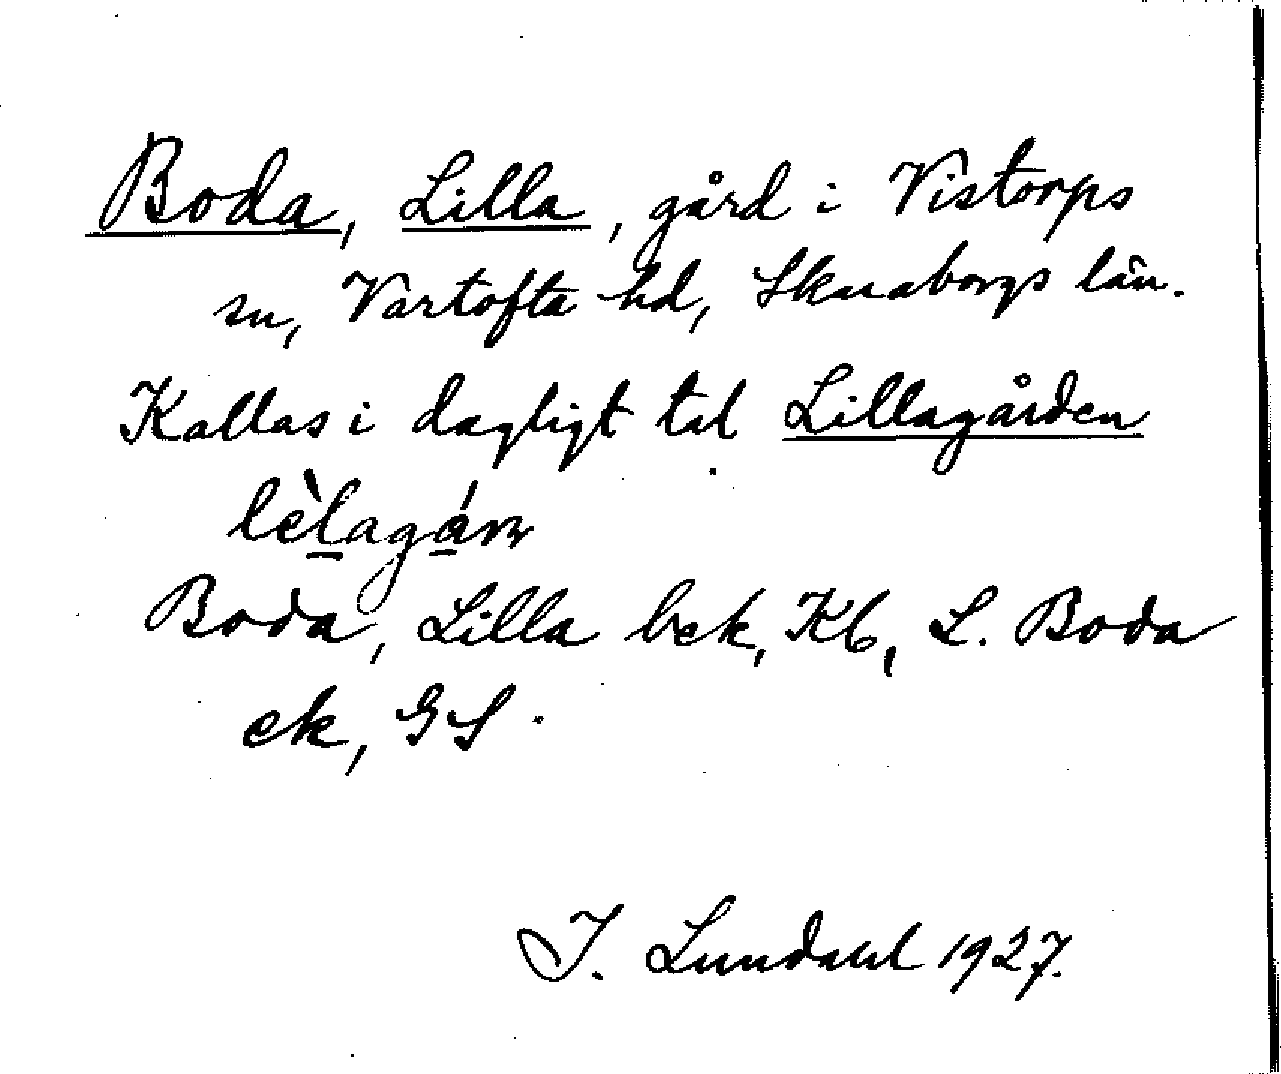 Boda, Lilla, gård i Vistorps
sn, Vartofta hd, Skaraborgs län.
Kallas i dagligt tal Lillagården
lèlagán
Boda, Lilla bek, Kb, L. Boda
ek, GS.
I. Lundahl 1927.